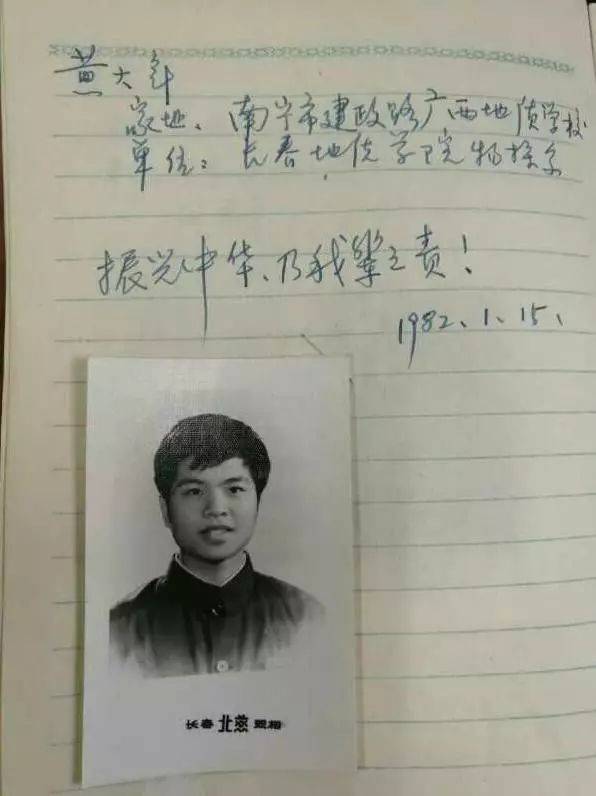 黄大年
家址、南宁市建政路广西地质学校
单位：长春地质学院物探系
振兴中华、乃我辈之责！
1982.1.15.
长春 照相